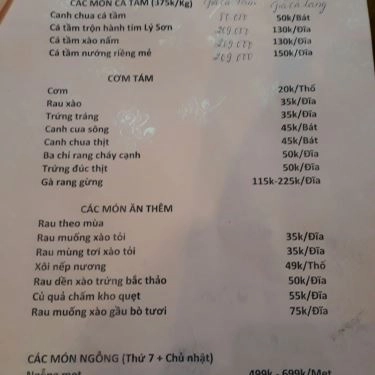 CÁC MÓN CÁ TẦM (375k/Kg) Giá cá tầm Giá cá lăng
Canh chua cá tầm 50k/Bát
Cá tầm trộn hành tím Lý Sơn 209.000 130k/Đĩa
Cá tầm xào nấm 209.000 130k/Đĩa
Cá tầm nướng riềng mẻ 209.000 150k/Đĩa
CƠM TÁM
Cơm 20k/Thố
Rau xào 35k/Đĩa
Trứng tráng 35k/Đĩa
Canh cua sông 45k/Bát
Canh chua thịt 45k/Bát
Ba chỉ rang cháy cạnh 50k/Đĩa
Trứng đúc thịt 50k/Đĩa
Gà rang gừng 115k-225k/Đĩa
CÁC MÓN ĂN THÊM
Rau theo mùa
Rau muống xào tỏi 35k/Đĩa
Rau mùng tơi xào tỏi 35k/Đĩa
Xôi nếp nương 49k/Thố
Rau dền xào trứng bắc thảo 50k/Đĩa
Củ quả chấm kho quẹt 55k/Đĩa
Rau muống xào gầu bò tươi 75k/Đĩa
CÁC MÓN NGỖNG (Thứ 7 + Chủ nhật)
Ngỗng mẹt 499k - 699k/Mẹt